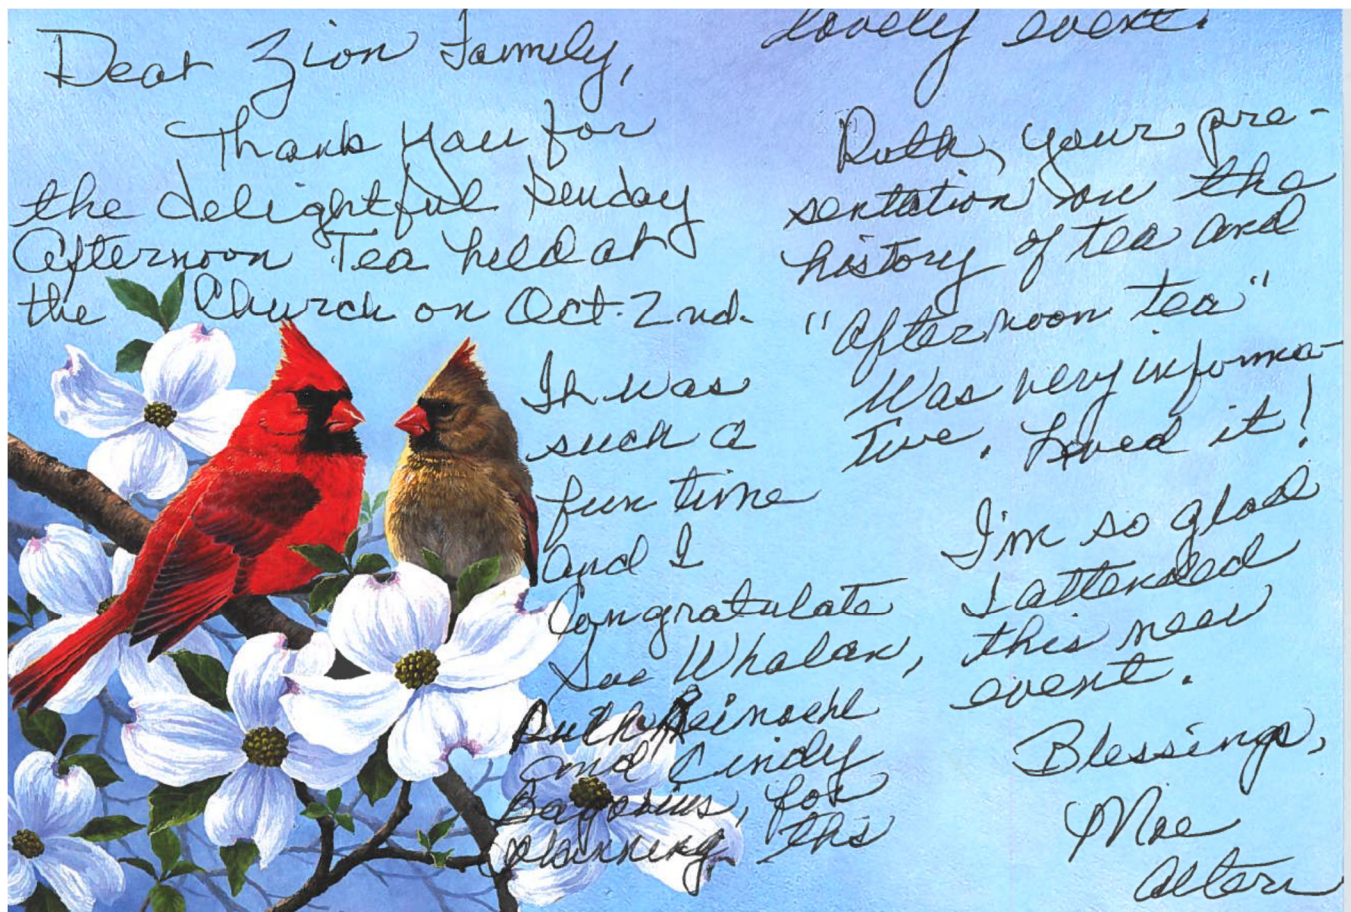 Dear Zion Family,
Thank you for
the delightful Sunday
Afternoon Tea held at
the Church on Oct. 2nd.
It was
such a
fun time
and I
Congratulate
Sue Whalen,
Ruth Reinoehl
and Cindy
for
planning this
lovely event.
Ruth, your pre-
sentation on the
history of tea and
"afternoon tea"
was very informa-
tive. Loved it!
I'm so glad
I attended
this new
event.
Blessings,
Mae